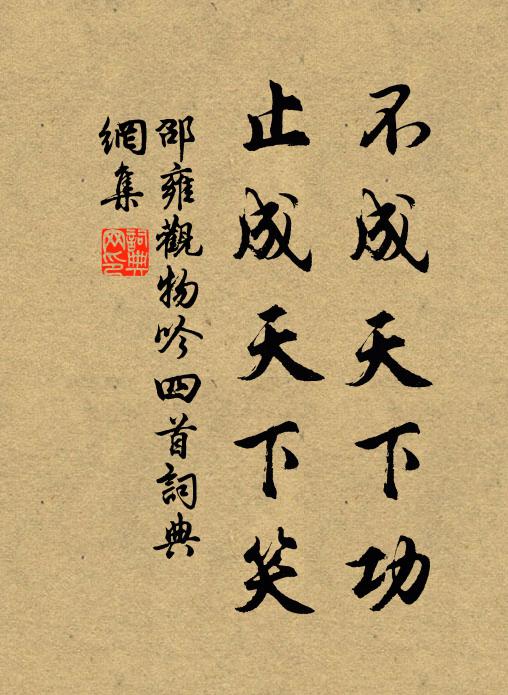 不成天下功
止成天下笑
邵雍觀物吟四首詞典
網集
詞典
网印